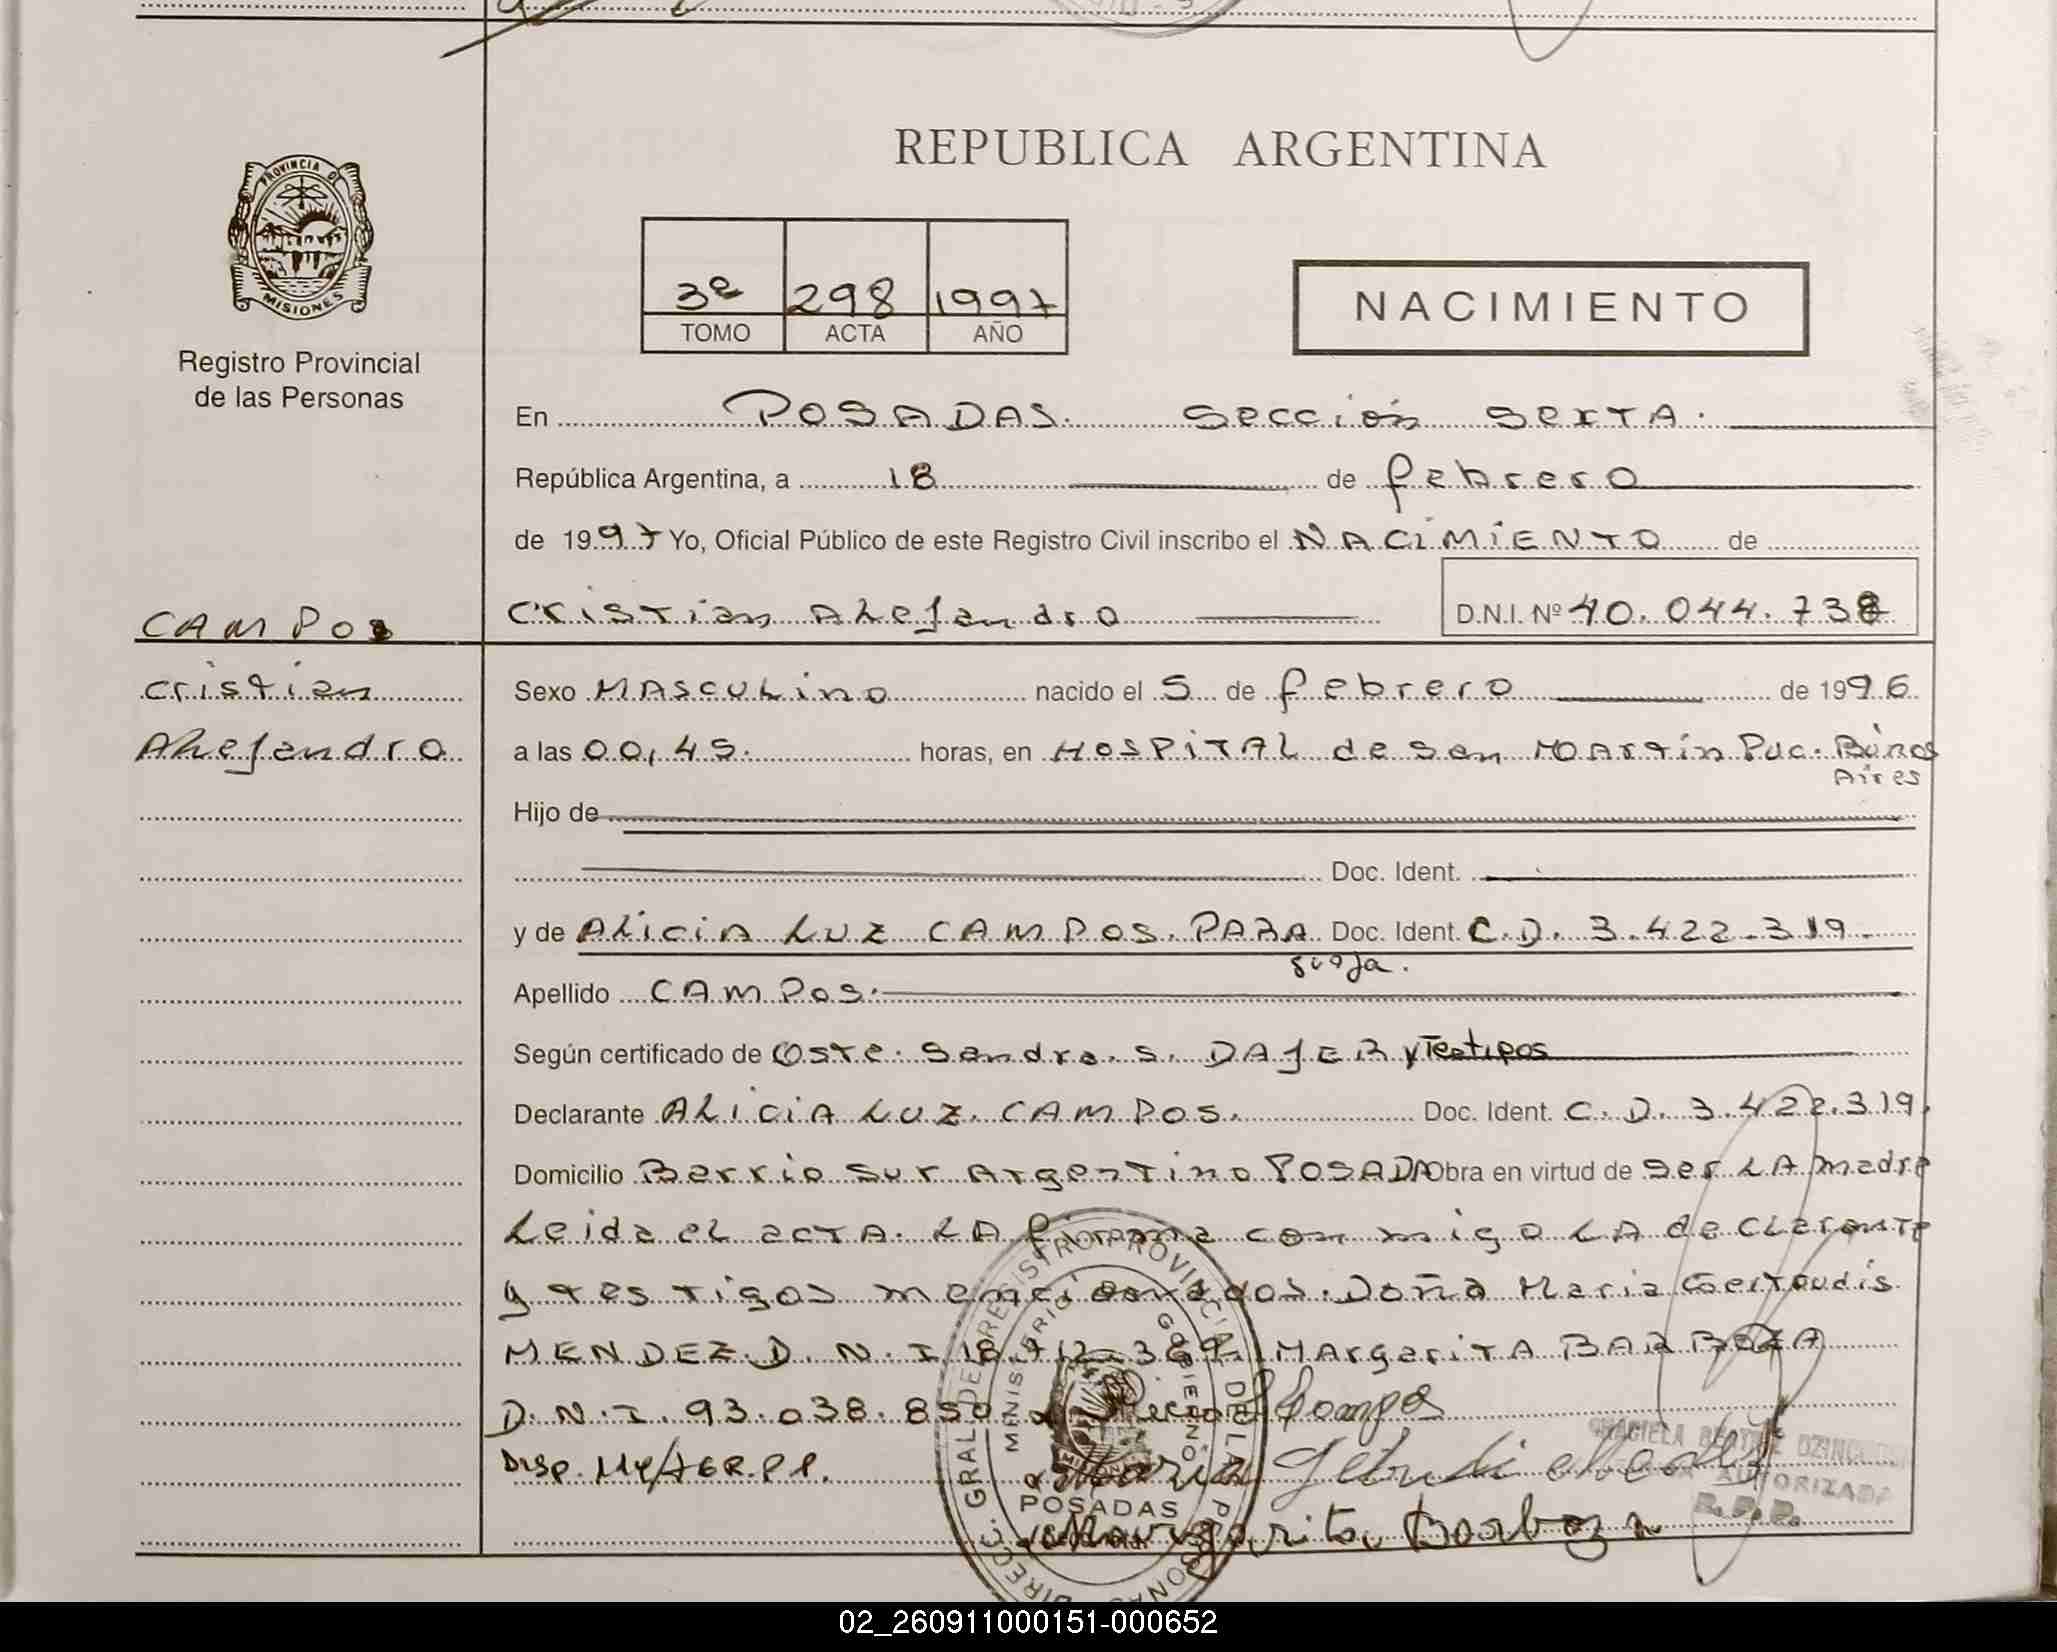 PROVINCIA D
MISIONES
Registro Provincial
de las Personas
REPUBLICA ARGENTINA
3º 298 1997
TOMO ACTA AÑO
NACIMIENTO
En POSADAS. Sección Sexta.
República Argentina, a 18 de febrero
de 1997 Yo, Oficial Público de este Registro Civil inscribo el NACIMIENTO de
CAMPOS
Cristian Alejandro
D.N.I. Nº 40.044.738
Cristian
Alejandro
Sexo MASCULino nacido el 5 de febrero de 1996
a las 00,45. horas, en HOSPITAL de San Martín Puc. Bùnos
Aires
Hijo de
Doc. Ident.
y de Alicia Luz CAMPOS. PARA Doc. Ident. C.D. 3.422.319.
guaja.
Apellido CAMPOS.
Según certificado de Oste. Sandra. S. DAJER y Testigos
Declarante Alicia Luz. CAMPOS. Doc. Ident. C.D. 3.422.319.
Domicilio Barrio Sur Argentino POSADA Obra en virtud de ser LA madre
Leida el acta. LA firma con migo LA declarante
y testigos mencionados. Doña Maria Gertrudis
MENDEZ. D.N.I. 18.712.389. MArgarita BARBOZA
D.N.I. 93.038.850
Disp.
Margarita Barboza
DIRECC. GRAL. DE REGISTRO PROVINCIAL DE LAS PERSONAS
MINISTERIO GOBIERNO
POSADAS
GRACIELA BEATRIZ
AUTORIZADA
R.P.P.
02_260911000151-000652